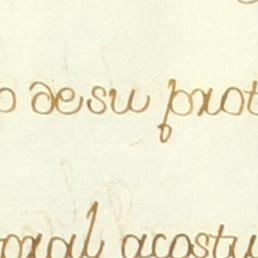 o de su prot
oral acostu